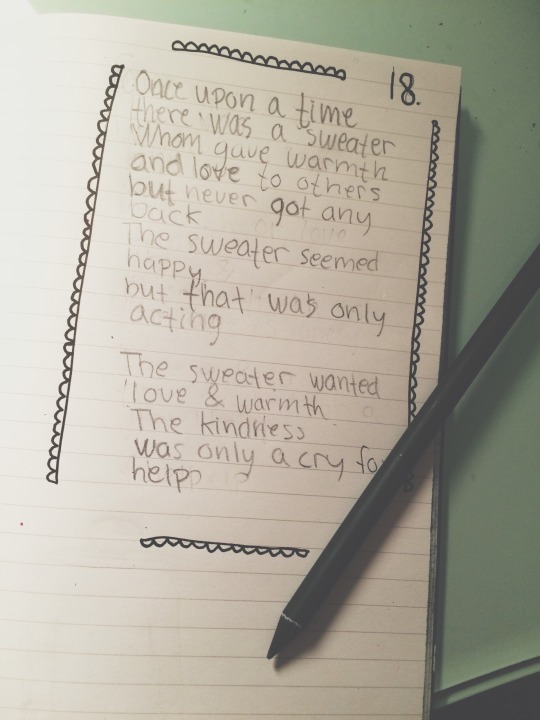 18.
Once upon a time
there was a sweater
Whom gave warmth
and love to others
but never got any
back
The sweater seemed
happy
but that was only
acting
The sweater wanted
love & warmth
The kindness
was only a cry fo
help